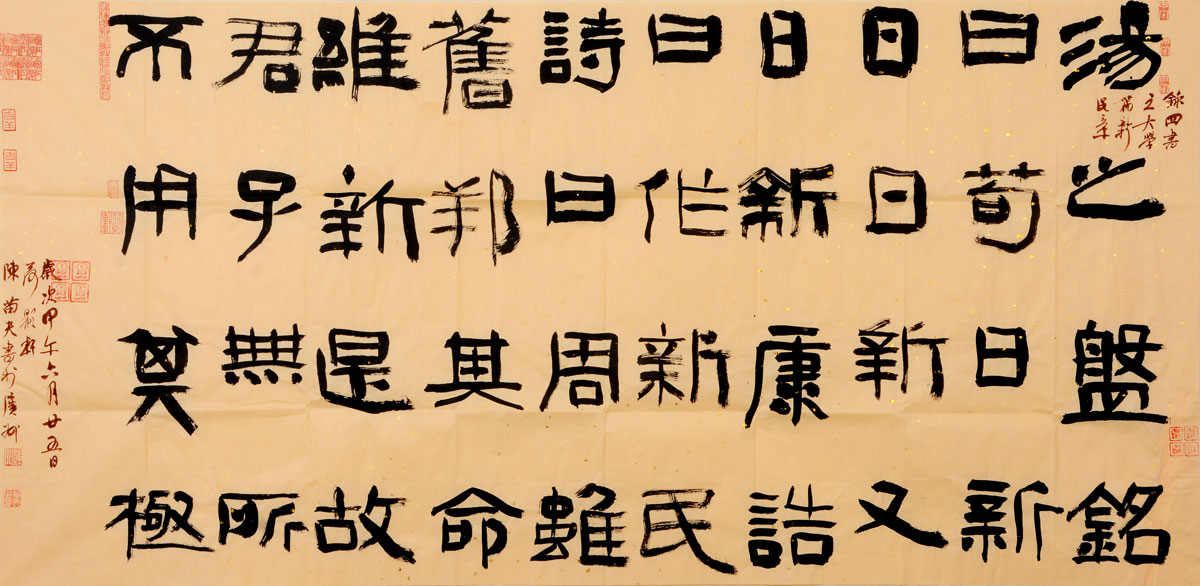 湯之盤銘
曰苟日新
日日新又
日新康誥
曰作新民
詩曰周雖
舊邦其命
維新是故
君子無所
不用其極
錄四書
之大學
篇新
民章
歲次甲午六月廿五日
影軒
陳苗夫書於廣州